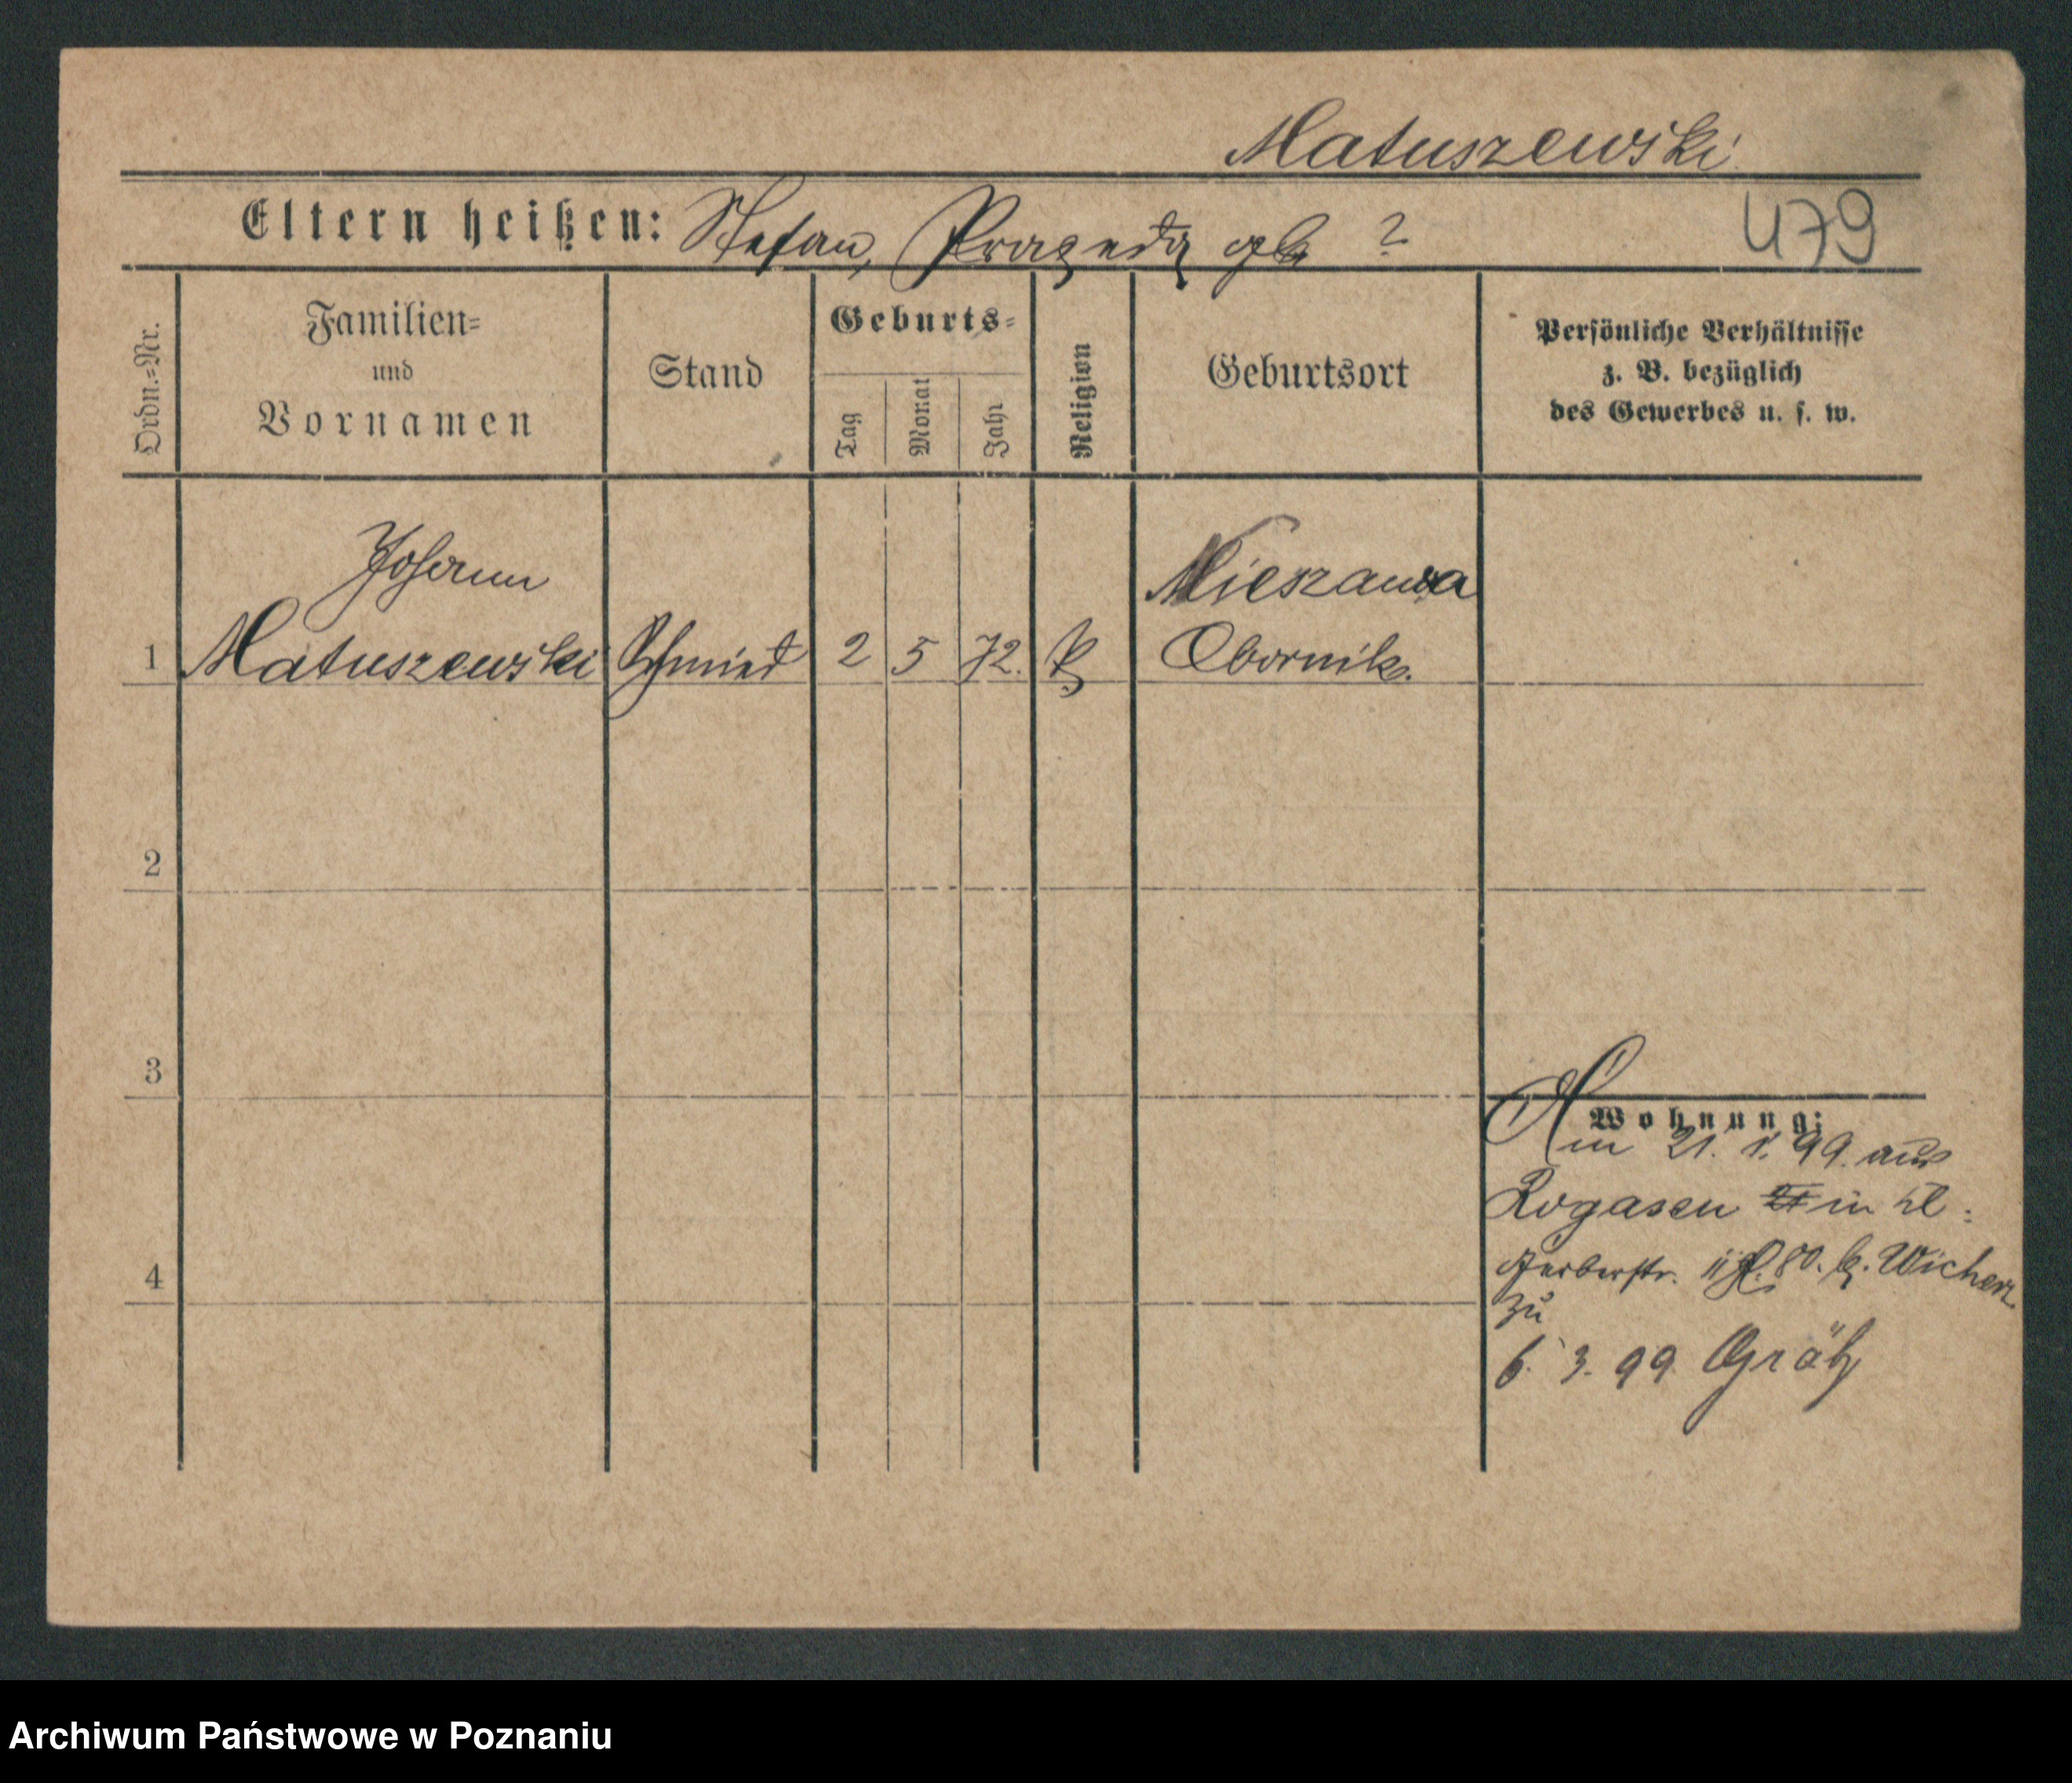 Matuszewski
Eltern heißen: Stefan, Prazeda gb ?
479
Ordn.=Nr.
Familien=
und
Vornamen
Stand
Geburts=
Tag
Monat
Jahr
Religion
Geburtsort
Persönliche Verhältnisse
z. B. bezüglich
des Gewerbes u. s. w.
Johann
Nieszawa
1 Matuszewski Schmied 2 5 72. k Obornik.
2
3
Wohnung:
Am 21. 1. 99. aus
Rogasen in kl:
Gerberstr. 11 b. Wicherz
4
zu
6. 3. 99 Grätz
Archiwum Państwowe w Poznaniu